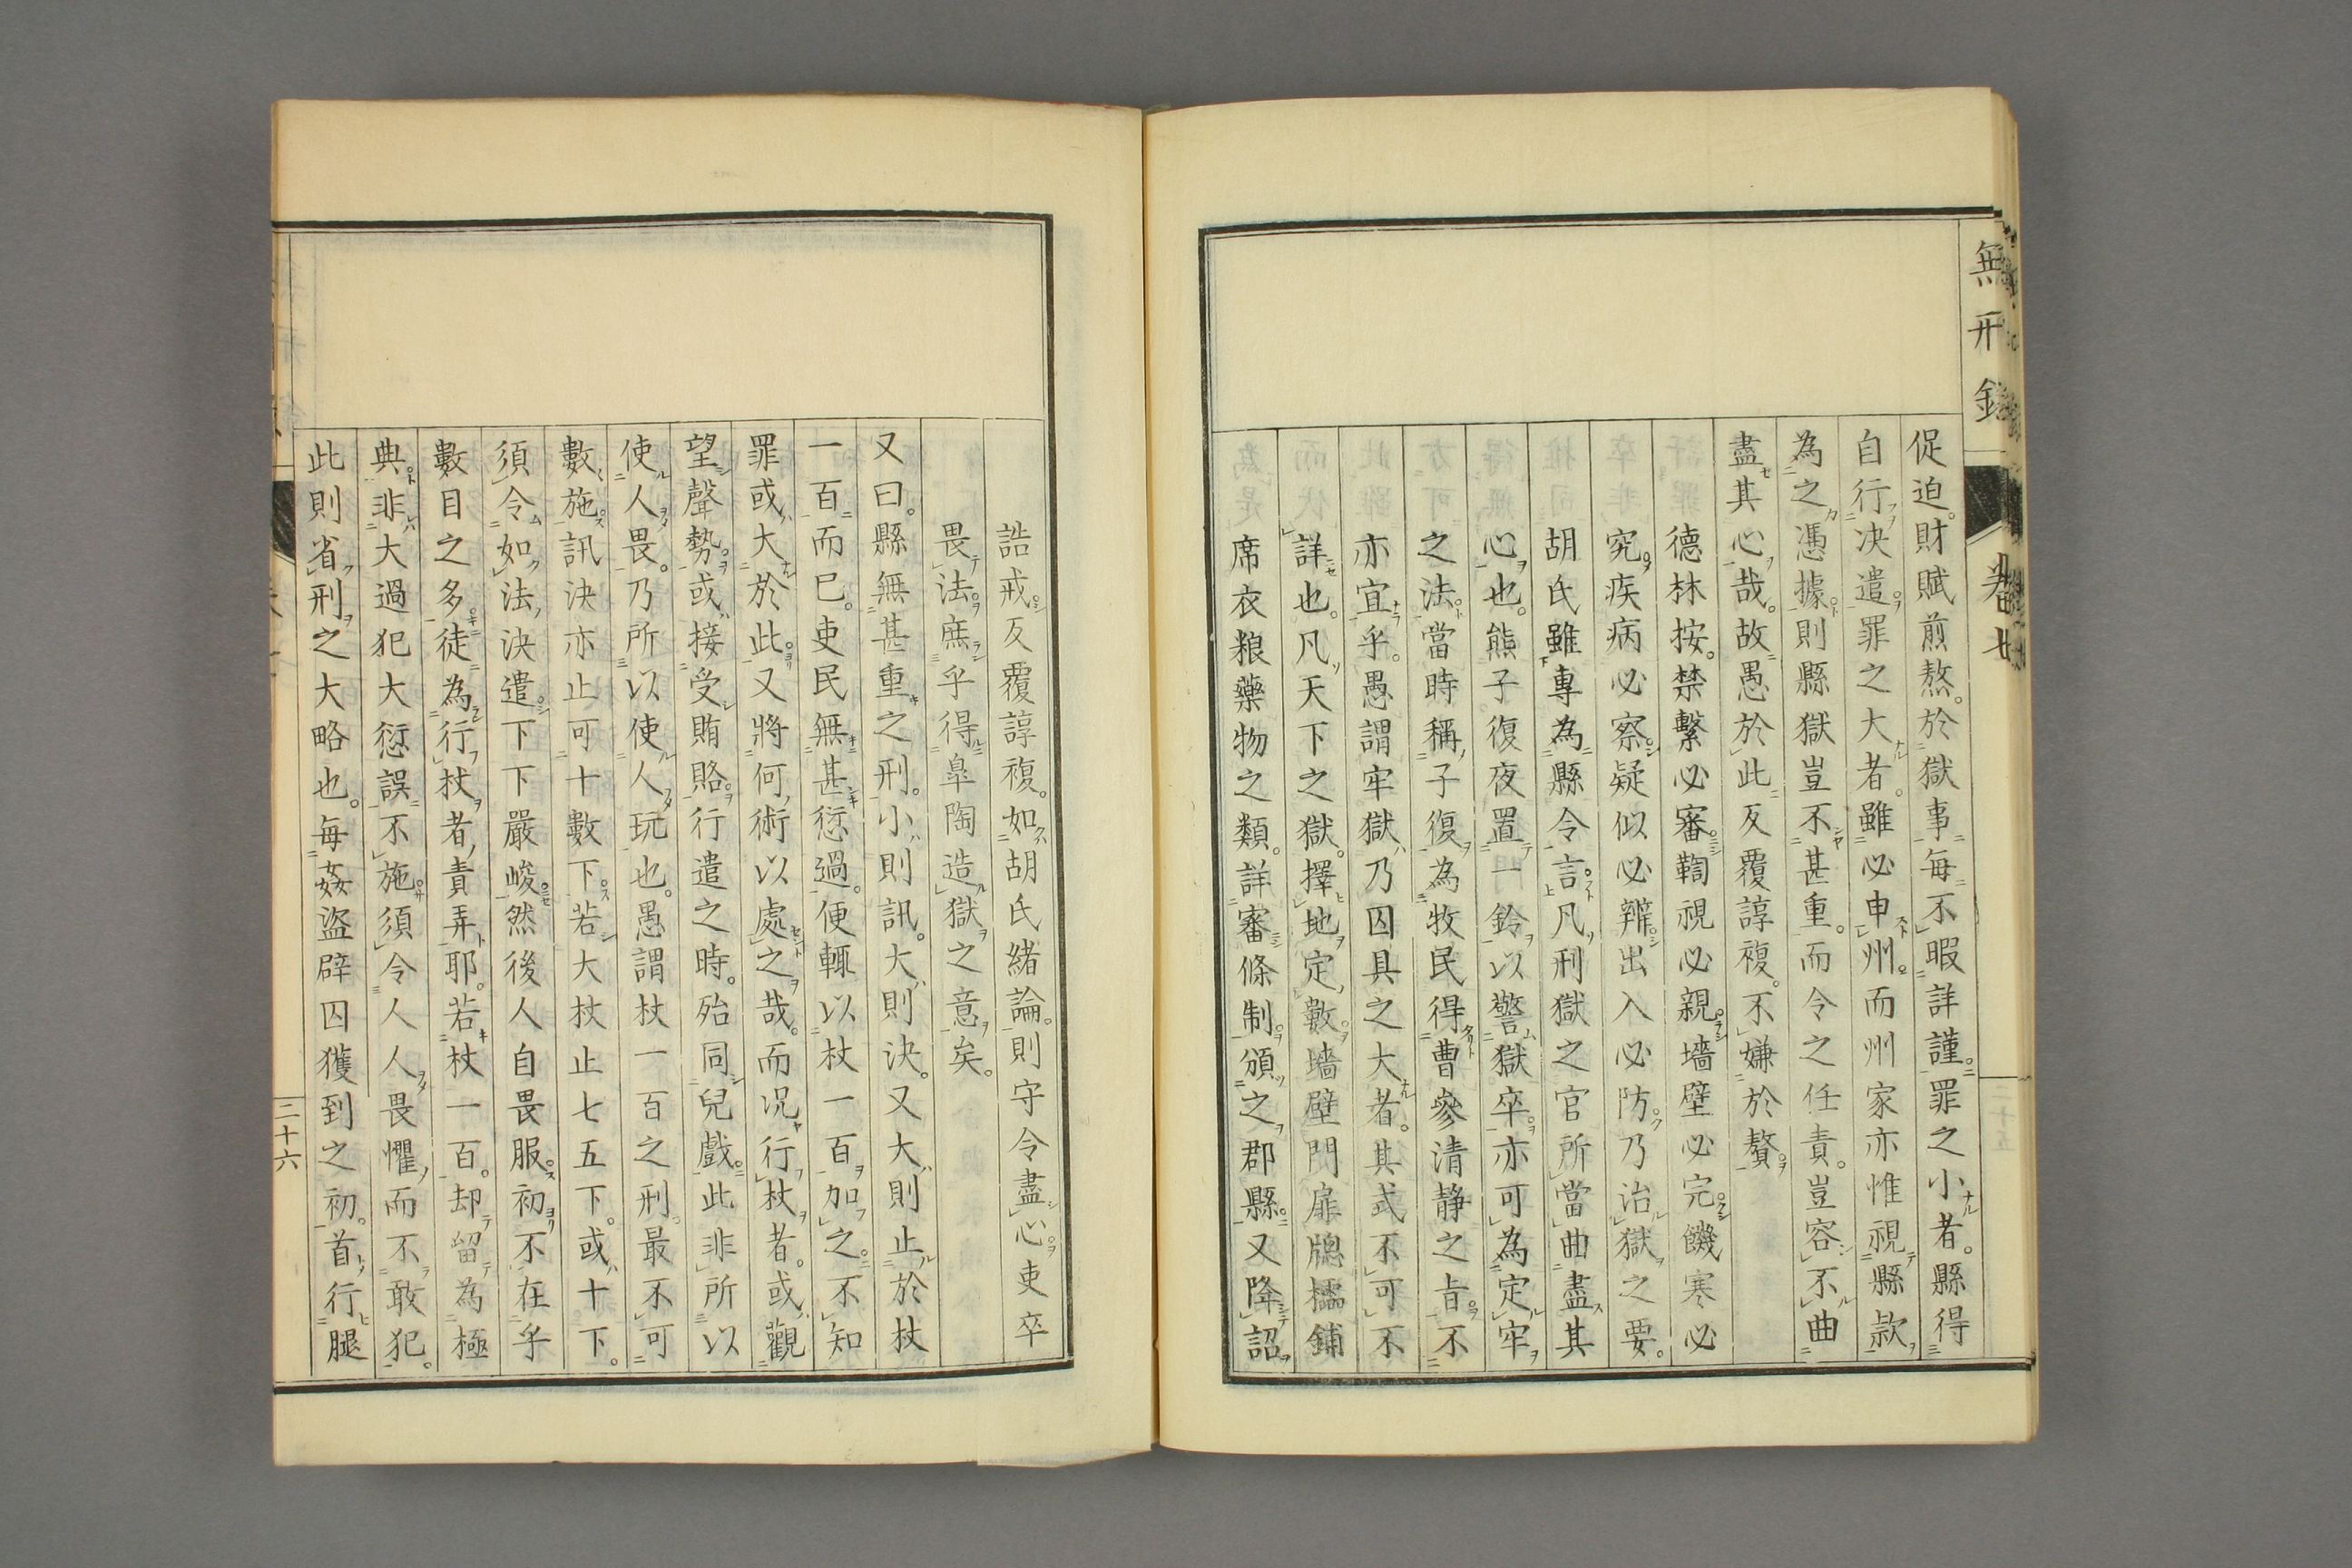 無刑錄
卷七
促迫。財賦煎熬。於獄事每不暇詳謹。罪之小者。縣得
自行决遣。罪之大者。雖必申州。而州家亦惟視縣款
為之憑據。則縣獄豈不甚重。而令之任責。豈容不曲
盡其心哉。故愚於此反覆諄複。不嫌於贅。
德林按。禁繫必審鞫視必親。墻壁必完。饑寒必
究。疾病必察。疑似必辨。出入必防。乃治獄之要。
胡氏雖專為縣令言。凡刑獄之官所當曲盡其
心也。熊子復夜置一鈴以警獄卒。亦可為定牢
之法。當時稱子復為牧民得曹參清静之旨。不
亦宜乎。愚謂牢獄乃囚具之大者。其式不可不
詳也。凡天下之獄。擇地定數。墻壁門扉牕櫺鋪
席衣粮藥物之類。詳審條制。頒之郡縣。又降詔
二十五
誥戒反覆諄複。如胡氏緒論。則守令盡心。吏卒
畏法。庶乎得皐陶造獄之意矣。
又曰。縣無甚重之刑。小則訊。大則決。又大則止於杖
一百而已。吏民無甚愆過。便輒以杖一百加之。不知
罪或大於此。又將何術以處之哉。而况行杖者。或觀
望聲勢。或接受賄賂。行遣之時。殆同兒戲。此非所以
使人畏。乃所以使人玩也。愚謂杖一百之刑。最不可
數施訊決亦止可十數下。若大杖止七五下。或十下。
須令如法決遣。下下嚴峻。然後人自畏服。初不在乎
數目之多。徒為行杖者責弄耶。若杖一百。却留為極
典。非大過犯大愆誤不施。須令人人畏懼而不敢犯。
此則省刑之大略也。每姦盜辟囚獲到之初。首行腿
二十六